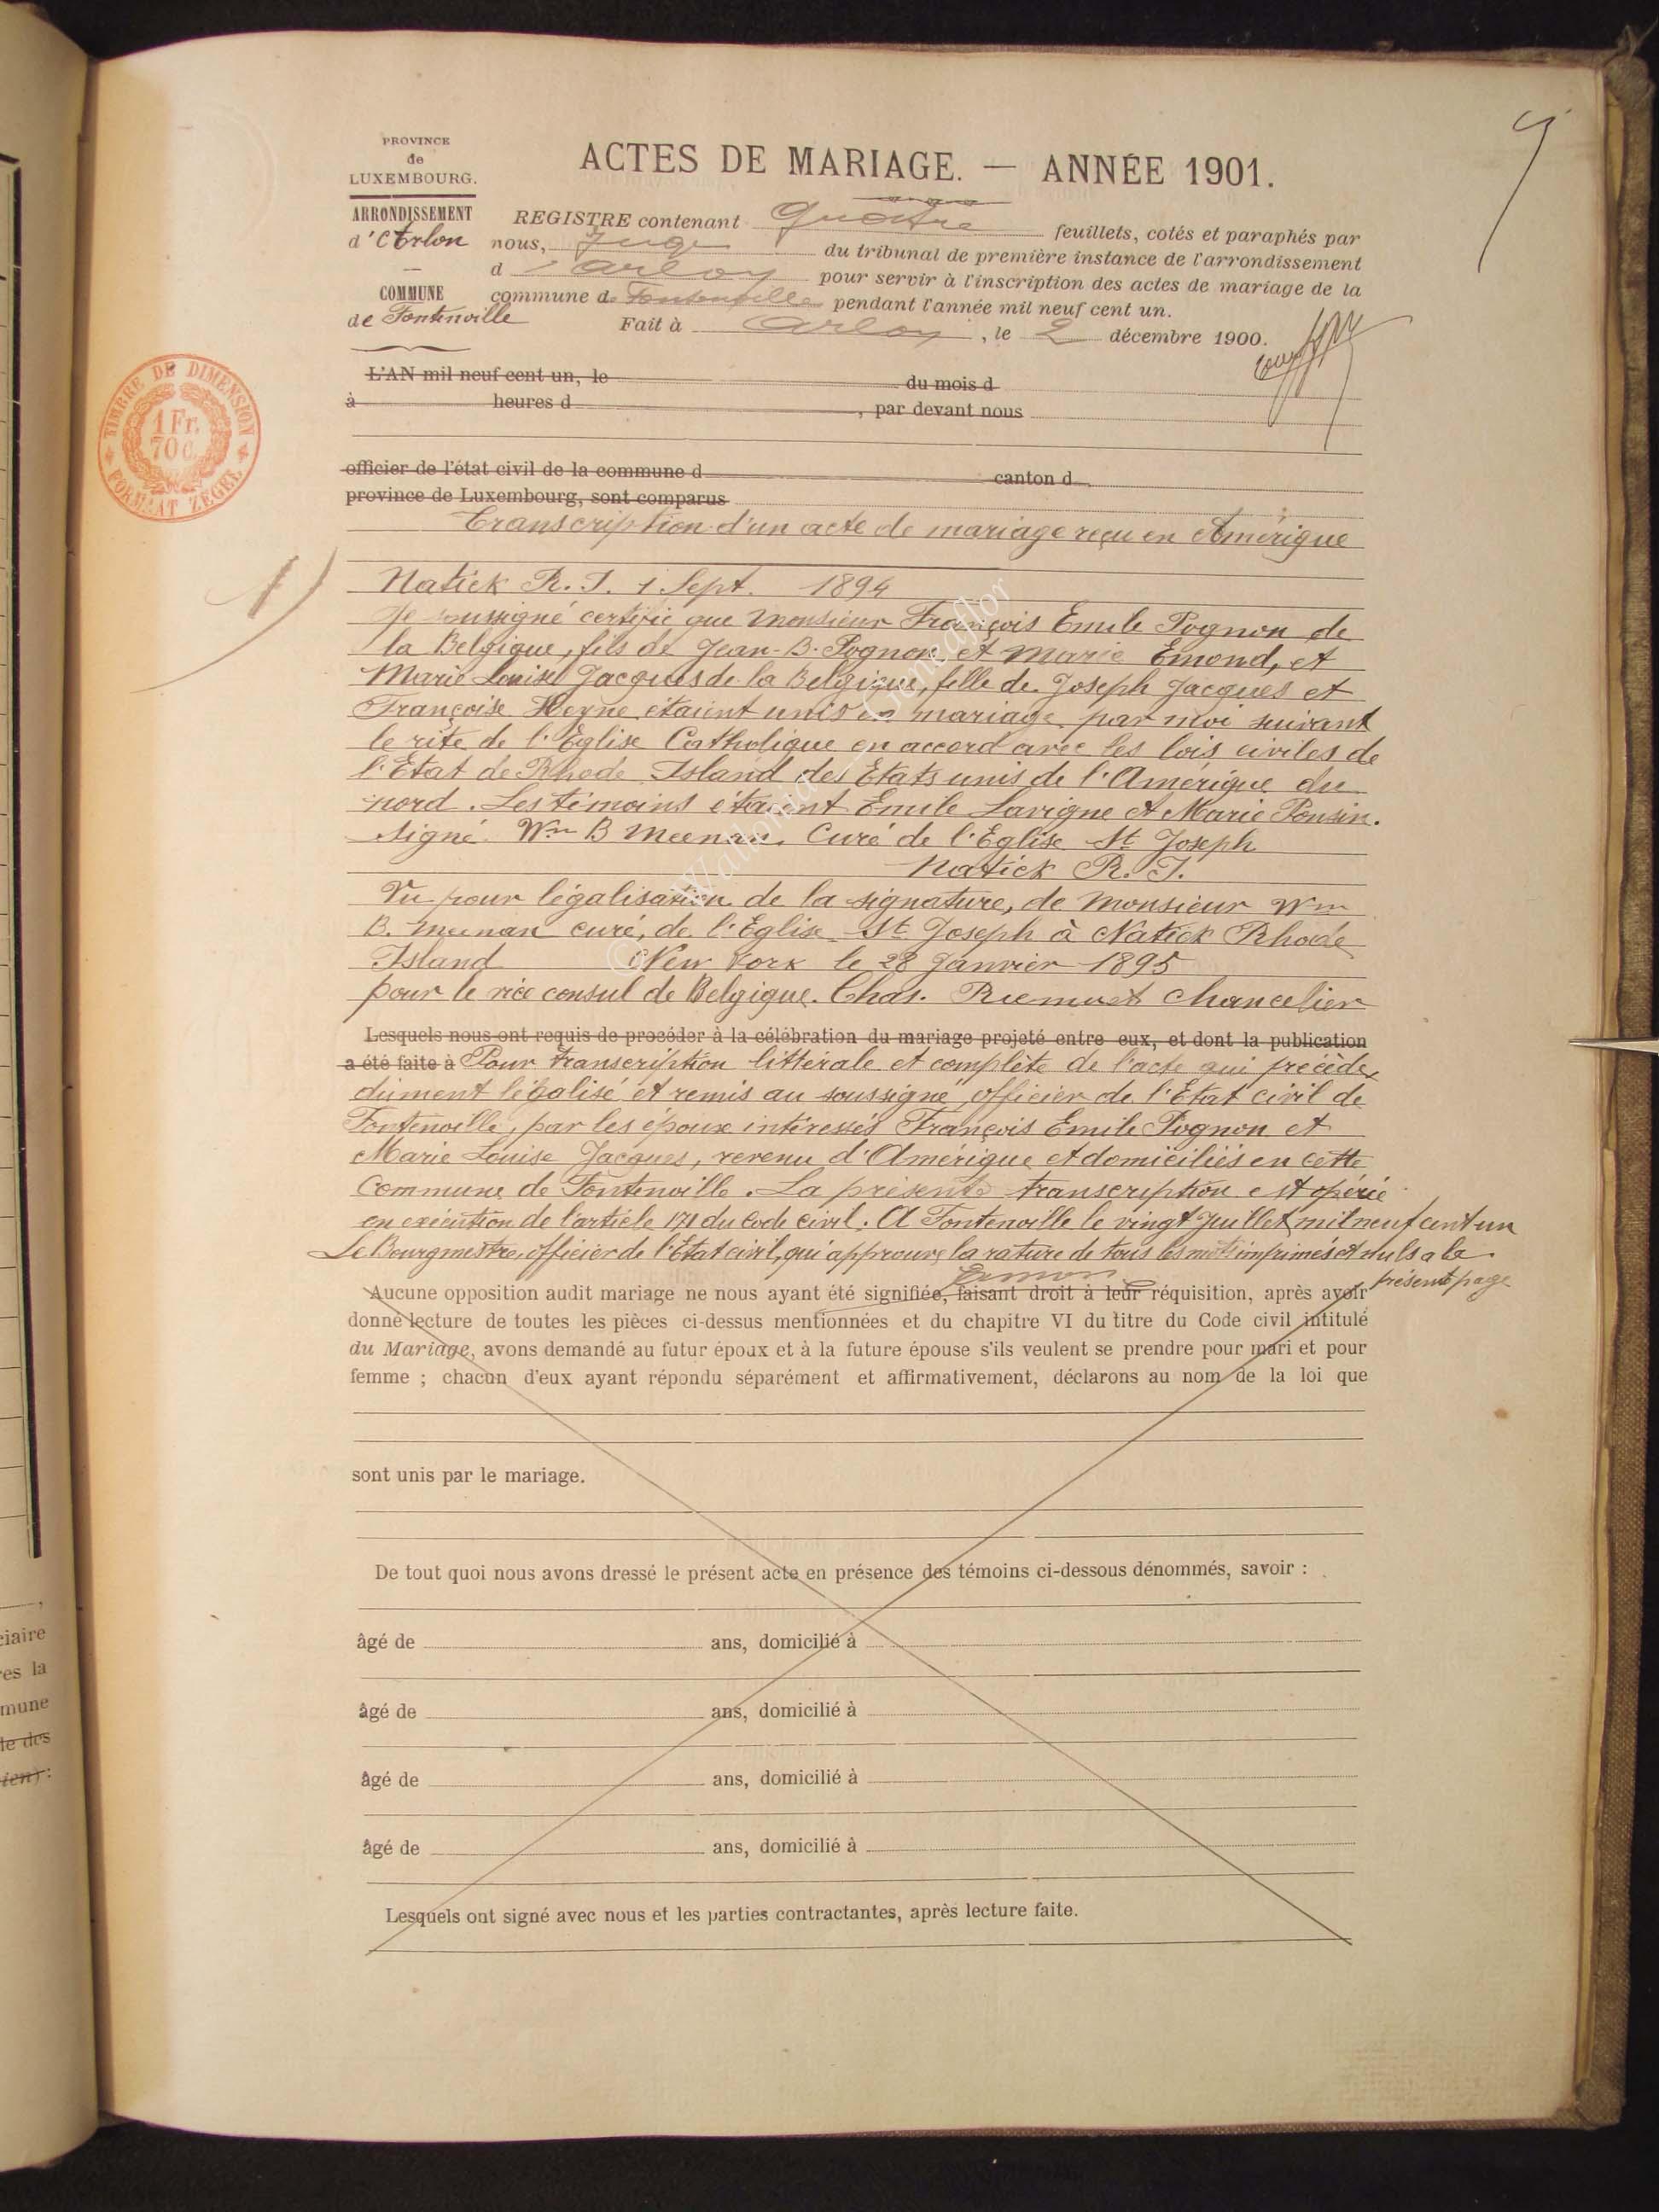 PROVINCE
de
LUXEMBOURG.
ARRONDISSEMENT
d'Arlon
COMMUNE
de Fontenoille
ACTES DE MARIAGE. — ANNÉE 1901.
REGISTRE contenant quatre feuillets, cotés et paraphés par
nous, Juge du tribunal de première instance de l'arrondissement
d'Arlon pour servir à l'inscription des actes de mariage de la
commune de Fontenoille pendant l'année mil neuf cent un.
Fait à Arlon, le 2 décembre 1900.
TIMBRE DE DIMENSION
1 Fr.
70 c.
FORMAAT ZEGEL
L'AN mil neuf cent un, le du mois d
à heures d , par devant nous
officier de l'état civil de la commune d canton d
province de Luxembourg, sont comparus
Transcription d'un acte de mariage reçu en Amérique
1)
Natick R. I. 1 Sept. 1894
Je soussigné certifie que Monsieur François Emile Pognon de
la Belgique, fils de Jean-B. Pognon et Marie Emond, et
Marie Louise Jacques de la Belgique, fille de Joseph Jacques et
Françoise Heyne étaient unis en mariage par moi suivant
le rite de l'Eglise Catholique en accord avec les lois civiles de
l'Etat de Rhode Island des Etats unis de l'Amérique du
nord. Les témoins étaient Emile Lavigne et Marie Ponsin.
signé Wm B Meenan. Curé de l'Eglise St Joseph
Natick R. I.
Vu pour légalisation de la signature, de Monsieur Wm
B. Meenan curé, de l'Eglise St Joseph à Natick Rhode
Island New York le 28 Janvier 1895
pour le vice consul de Belgique. Chas. chancelier
Lesquels nous ont requis de procéder à la célébration du mariage projeté entre eux, et dont la publication
a été faite à Pour transcription littérale et complète de l'acte qui précède,
dument légalisé et remis au soussigné, officier de l'Etat civil de
Fontenoille, par les époux intéressés François Emile Pognon et
Marie Louise Jacques, revenu d'Amérique et domiciliés en cette
commune de Fontenoille. La présente transcription est opérée
en exécution de l'article 171 du Code civil. A Fontenoille le vingt Juillet mil neuf cent un
Le Bourgmestre, officier de l'Etat civil, qui approuve la rature de tous les mots imprimés et nuls a la
présente page
Aucune opposition audit mariage ne nous ayant été signifiée, faisant droit à leur réquisition, après avoir
donné lecture de toutes les pièces ci-dessus mentionnées et du chapitre VI du titre du Code civil intitulé
du Mariage, avons demandé au futur époux et à la future épouse s'ils veulent se prendre pour mari et pour
femme ; chacun d'eux ayant répondu séparément et affirmativement, déclarons au nom de la loi que
sont unis par le mariage.
De tout quoi nous avons dressé le présent acte en présence des témoins ci-dessous dénommés, savoir :
âgé de ans, domicilié à
âgé de ans, domicilié à
âgé de ans, domicilié à
âgé de ans, domicilié à
Lesquels ont signé avec nous et les parties contractantes, après lecture faite.
ciaire
res la
mune
le des
ien) :